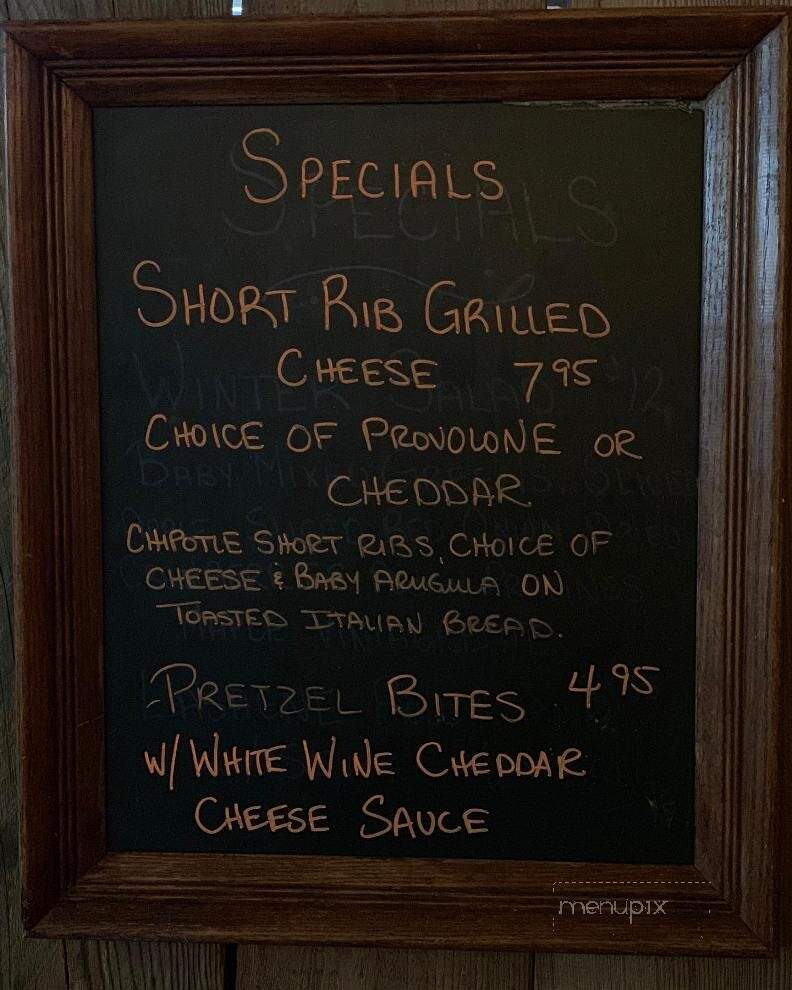 SPECIALS
SHORT RIB GRILLED
CHEESE 7 95
CHOICE OF PROVOLONE OR
CHEDDAR
CHIPOTLE SHORT RIBS, CHOICE OF
CHEESE & BABY ARUGULA ON
TOASTED ITALIAN BREAD.
PRETZEL BITES 4 95
W/ WHITE WINE CHEDDAR
CHEESE SAUCE
SPECIALS
WINTER SALAD $12
BABY MIXED GREENS, SLICED
menupix